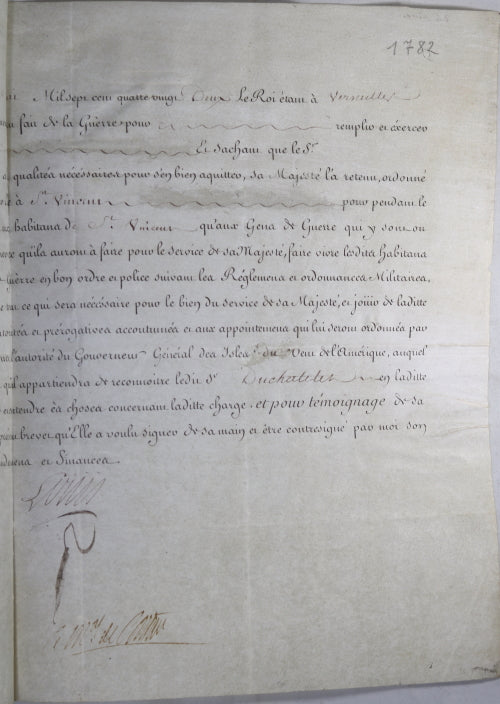 1782
Mil sept cent quatre vingt Deux Le Roi étant à Versailles
fait de la Guerre, pour remplir et éxercer
Et sachant que le Sr.
qualités nécessaires pour s'en bien aquitter, sa Majesté l'a retenu, ordonné
à St. Vincent pour pendant le
habitans de St. Vincent qu'aux Gens de Guerre qui y sont ou
qu'ils auront à faire pour le service de sa Majesté, faire vivre lesdits habitans
Guerre en bon ordre et police suivant les Réglemens et ordonnances Militaires,
ce qui sera nécessaire pour le bien du service de sa Majesté, et jouir de laditte
et prérogatives accoutumés et aux appointemens qui lui seront ordonnés par
l'autorité du Gouverneur Général des Isles du Vent de l'Amérique, auquel
qu'il appartiendra de reconnoitre ledit Sr. Duchatelet en laditte
entendre ès choses concernant laditte charge, et pour témoignage de sa
brevet qu'Elle a voulu signer de sa main et être contresigné par moi son
et Finances.
Louis
de Castries